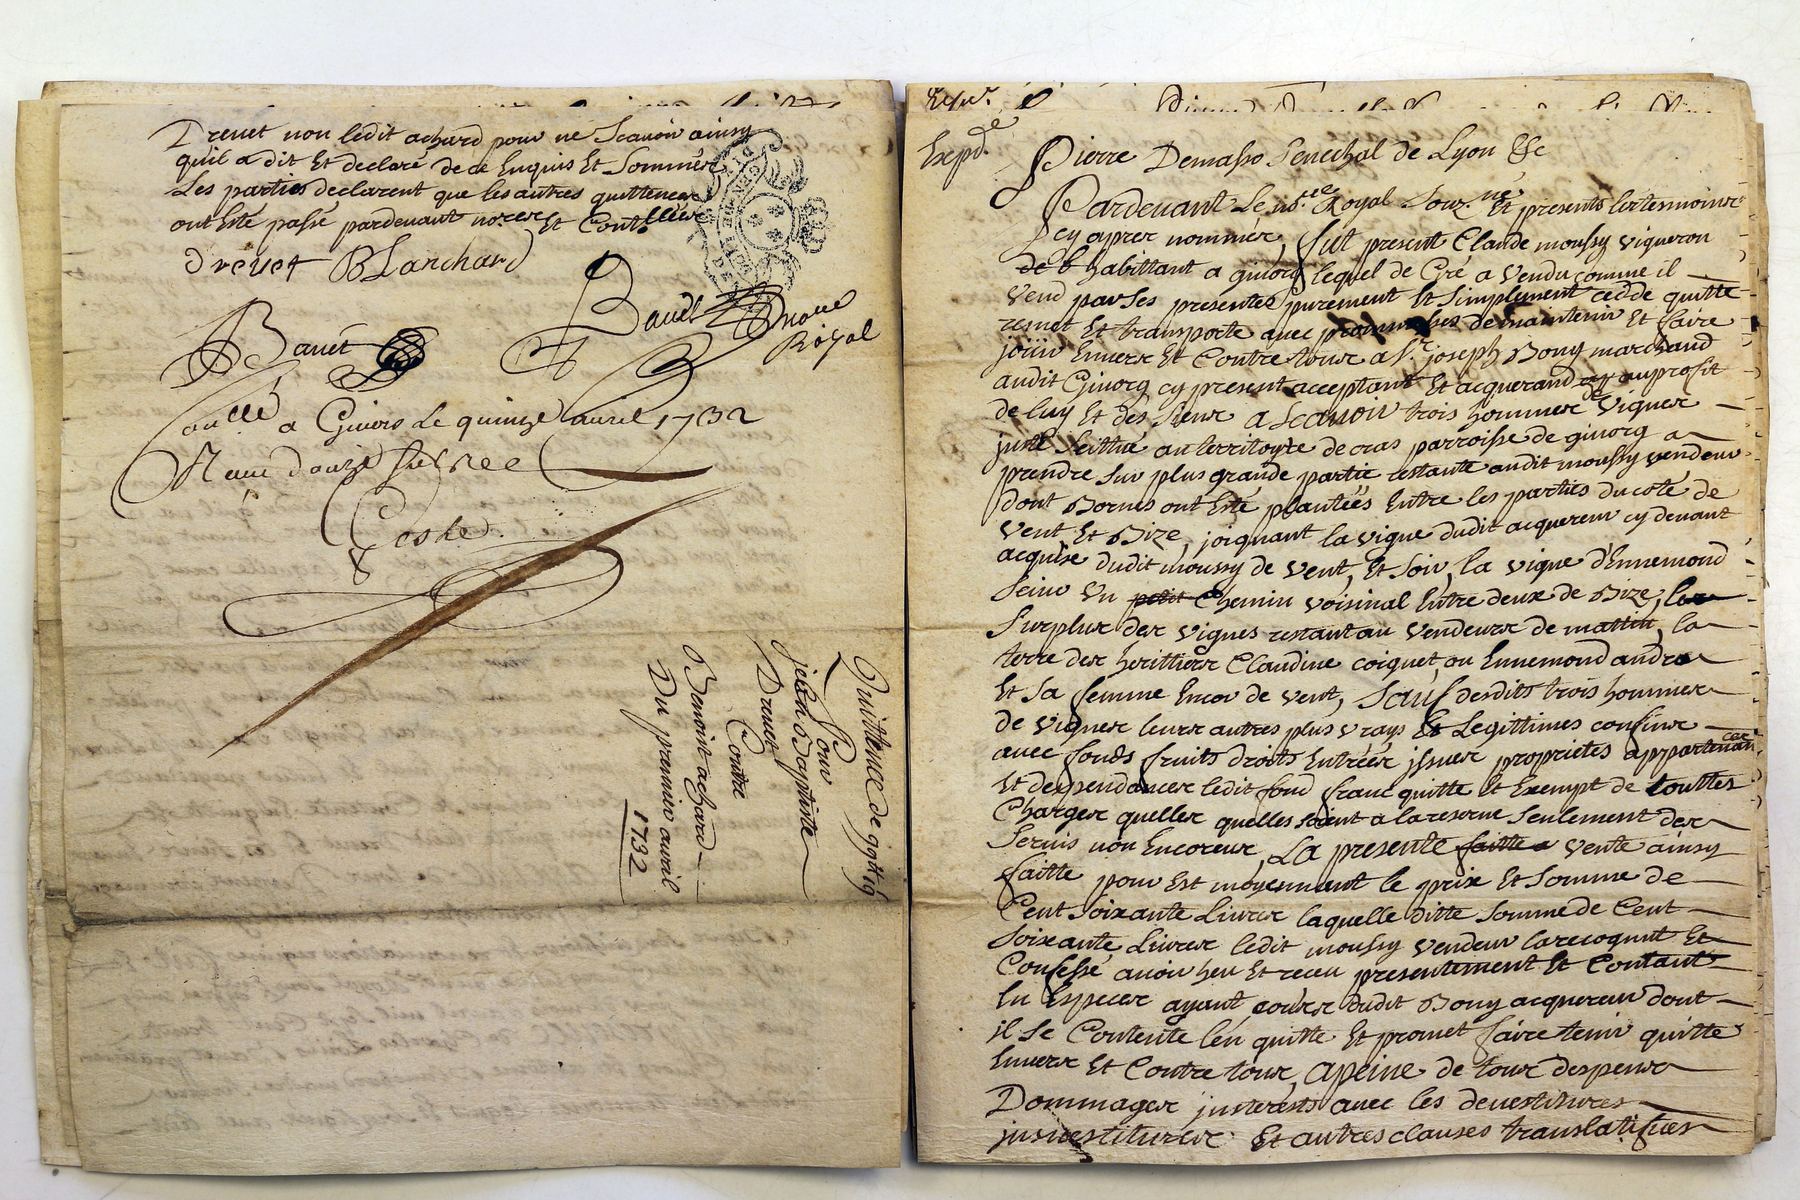 Drevet non ledit achard pour ne Scavoir ainsy
quil a dit Et declaré de ce Enquis Et Sommés
Les parties declarent que les autres quittences
ont Esté passé pardevant no.res Et Contllées
Drevet BLanchard
Bavet Bavet no.re Royal
Conllé a Givors Le quinze avril 1732
Reçu douze sols
Coste
Quittence de
Pour
jean Baptiste
Drevet
Contre
Benoist achard
Du premier avril
1732
Expd.e
Pierre Demasso Senechal de Lyon &c
Pardevant Le no.re Royal Souz.né Et presents les tesmoins
cy apres nommés, fut present Claude moussy vigneron
habittant a givors lequel de Gré a vendu comme il
vend par ses presentes purement Et Simplement cedde quitte
remet Et transporte avec promesses de maintenir Et faire
joüir Envers Et Contre tous a Sr. joseph Bony marchand
audit Givorq cy present acceptant Et acquerand au profit
de luy Et des Siens a Scavoir trois hommes de vignes
juste Scittué au territoyre de cras parroisse de givorq a
prendre sur plus grande partie restante audit moussy vendeur
dont Bornes ont Esté plantées Entre les parties du coté de
vent Et Bize, joignant la vigne dudit acquereur cy devant
acquise dudit moussy de vent, Et Soir, la vigne d'Ennemond
Seive un petit Chemin voisinal Entre deux de Bize, les
Surplus des vignes restant au vendeur de mattin, la
terre des herittiers Claudine coignet ou Ennemond andra
Et Sa femme Encor de vent, Sauf desdits trois hommes
de vignes leurs autres plus vrays Et Legittimes confins
avec fonds fruits droits Entrées jssues proprietés appartenances
Et dependances ledit fond franc quitte Et Exempt de touttes
Charges quelles quelles soient a la reserve Seulement des
Servis non Encourus, La presente faitte vente ainsy
faitte pour Est moyennant le prix Et Somme de
Cent Soixante Livres laquelle ditte Somme de Cent
Soixante Livres ledit moussy vendeur la recognut Et
Confessé avoir heu Et receu presentement Et Contant
En Especes ayant cours dudit Bony acquereur dont
il se Contente l'en quitte Et promet faire tenir quitte
Envers Et Contre tous, apeine de tous despens
Dommages justerests avec les devestitures
jnvestitures Et autres clauses translatifves